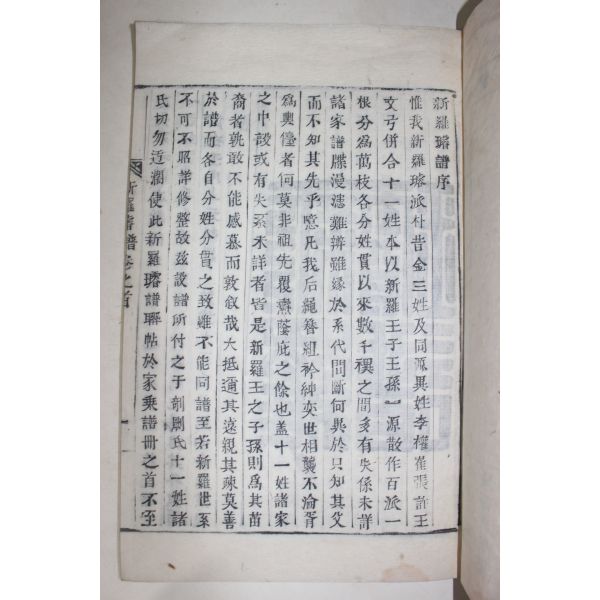 新羅璿譜序
惟我新羅璿派朴昔金三姓及同源異姓李權崔張許王
文弓併合十一姓本以新羅王子王孫一源散作百派一
根分爲萬枝各分姓貫以來數千禩之間多有失係未詳
諸家譜牒漫漶難辨雖緣於系代間斷何異於只知其父
而不知其先乎噫凡我后繩簪組衿紳奕世相襲不渝胥
爲輿儓者何莫非祖先覆燾蔭庇之餘也盖十一姓諸家
之中設或有失系未詳者皆是新羅王之子孫則爲其苗
裔者孰敢不能感慕而敦叙哉大抵邇其遠親其疎莫善
於譜而各自分姓分貫之致雖不能同譜至若新羅世系
不可不昭詳修整故玆設譜所付之于剞劂氏十一姓諸
氏切勿迃濶使此新羅璿譜聯帖於家乗譜冊之首不至
新羅璿譜卷之首